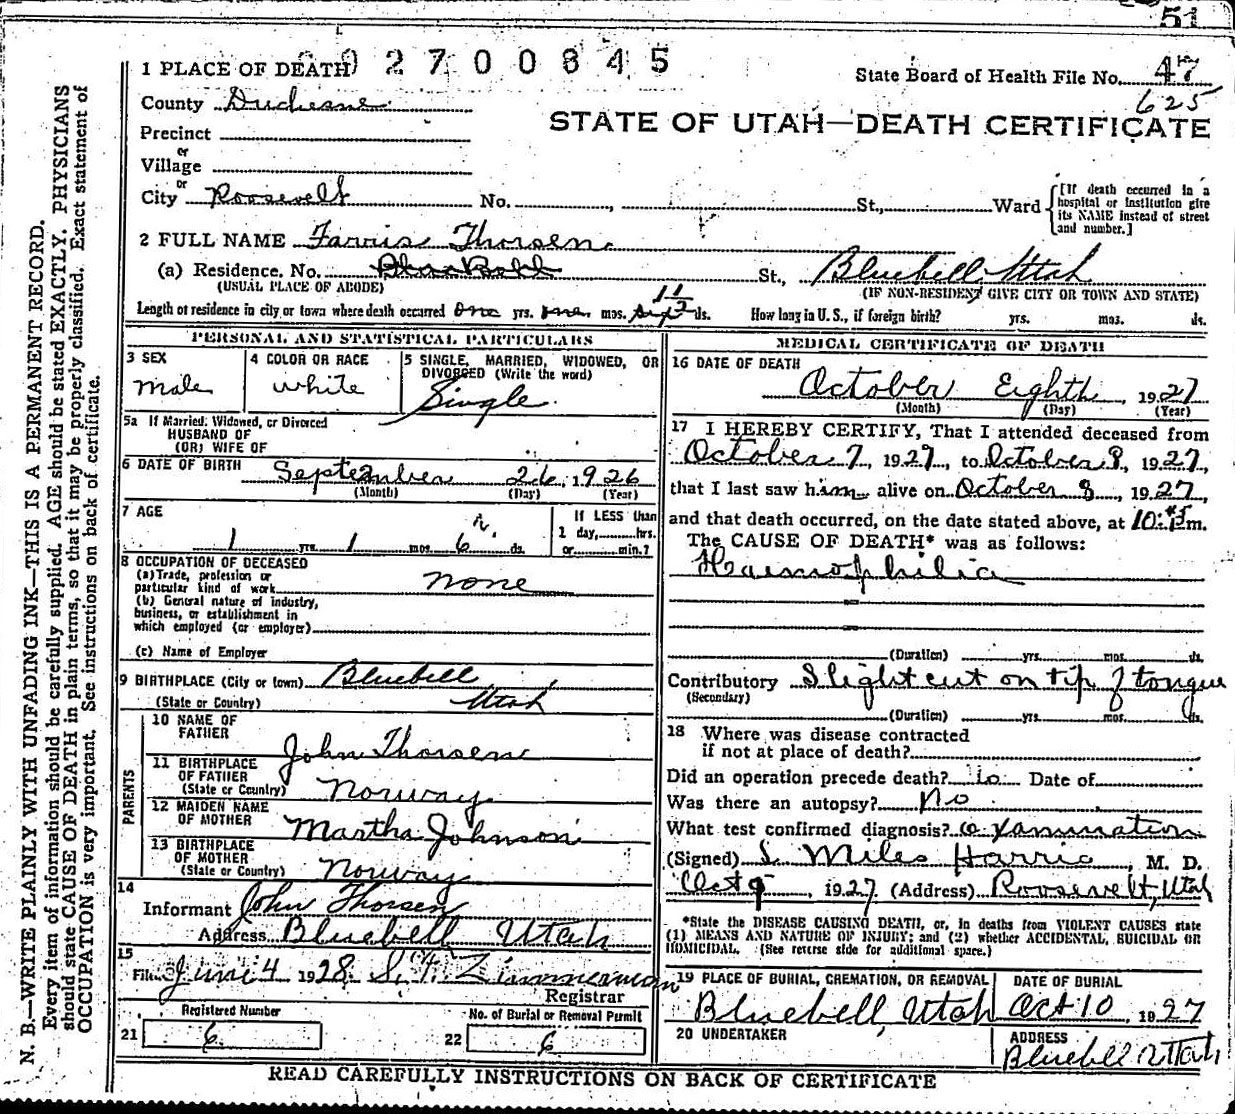 51
1 PLACE OF DEATH 2700845
State Board of Health File No. 47
625
County Duchesne
STATE OF UTAH—DEATH CERTIFICATE
Precinct
or
Village
or
City Roosevelt No. , St., Ward
[If death occurred in a hospital or institution give its NAME instead of street and number.]
2 FULL NAME Farris Thorsen
(a) Residence. No. St., Bluebell Utah
(USUAL PLACE OF ABODE) (IF NON-RESIDENT, GIVE CITY OR TOWN AND STATE)
11
Length of residence in city or town where death occurred one yrs. one mos. ds. How long in U. S., if foreign birth? yrs. mos. ds.
PERSONAL AND STATISTICAL PARTICULARS
3 SEX
Male
4 COLOR OR RACE
white
5 SINGLE, MARRIED, WIDOWED, OR DIVORCED (Write the word)
Single
5a If Married, Widowed, or Divorced
HUSBAND OF
(OR) WIFE OF
6 DATE OF BIRTH September 26, 1926
(Month) (Day) (Year)
7 AGE
1 yrs. 1 mos. 6 ds.
If LESS than
1 day, hrs.
or min.?
8 OCCUPATION OF DECEASED
(a) Trade, profession or
particular kind of work none
(b) General nature of industry,
business, or establishment in
which employed (or employer)
(c) Name of Employer
9 BIRTHPLACE (City or town) Bluebell
(State or Country) Utah
PARENTS
10 NAME OF
FATHER John Thorsen
11 BIRTHPLACE
OF FATHER
(State or Country) Norway
12 MAIDEN NAME
OF MOTHER Martha Johnson
13 BIRTHPLACE
OF MOTHER
(State or Country) Norway
14
Informant John Thorsen
Address Bluebell Utah
15
Filed 4 1928 Zimmerman
Registrar
Registered Number
21 6
No. of Burial or Removal Permit
22 6
MEDICAL CERTIFICATE OF DEATH
16 DATE OF DEATH
October Eighth, 1927
(Month) (Day) (Year)
17 I HEREBY CERTIFY, That I attended deceased from
October 7, 1927, to October 8, 1927,
that I last saw him alive on October 8, 1927,
and that death occurred, on the date stated above, at 10: m.
The CAUSE OF DEATH* was as follows:
Haemophilia
(Duration) yrs. mos. ds.
Contributory Slight cut on tip of tongue
(Secondary)
(Duration) yrs. mos. ds.
18 Where was disease contracted
if not at place of death?
Did an operation precede death? Date of
Was there an autopsy? no
What test confirmed diagnosis? examination
(Signed) Miles Harris, M. D.
Oct 9, 1927 (Address) Roosevelt, Utah
*State the DISEASE CAUSING DEATH, or, in deaths from VIOLENT CAUSES state
(1) MEANS AND NATURE OF INJURY; and (2) whether ACCIDENTAL, SUICIDAL OR
HOMICIDAL. (See reverse side for additional space.)
19 PLACE OF BURIAL, CREMATION, OR REMOVAL
Bluebell, Utah
DATE OF BURIAL
Oct 10, 1927
20 UNDERTAKER
ADDRESS
Bluebell Utah
READ CAREFULLY INSTRUCTIONS ON BACK OF CERTIFICATE
N. B.—WRITE PLAINLY WITH UNFADING INK—THIS IS A PERMANENT RECORD.
Every item of information should be carefully supplied. AGE should be stated EXACTLY. PHYSICIANS
should state CAUSE OF DEATH in plain terms, so that it may be properly classified. Exact statement of
OCCUPATION is very important. See instructions on back of certificate.